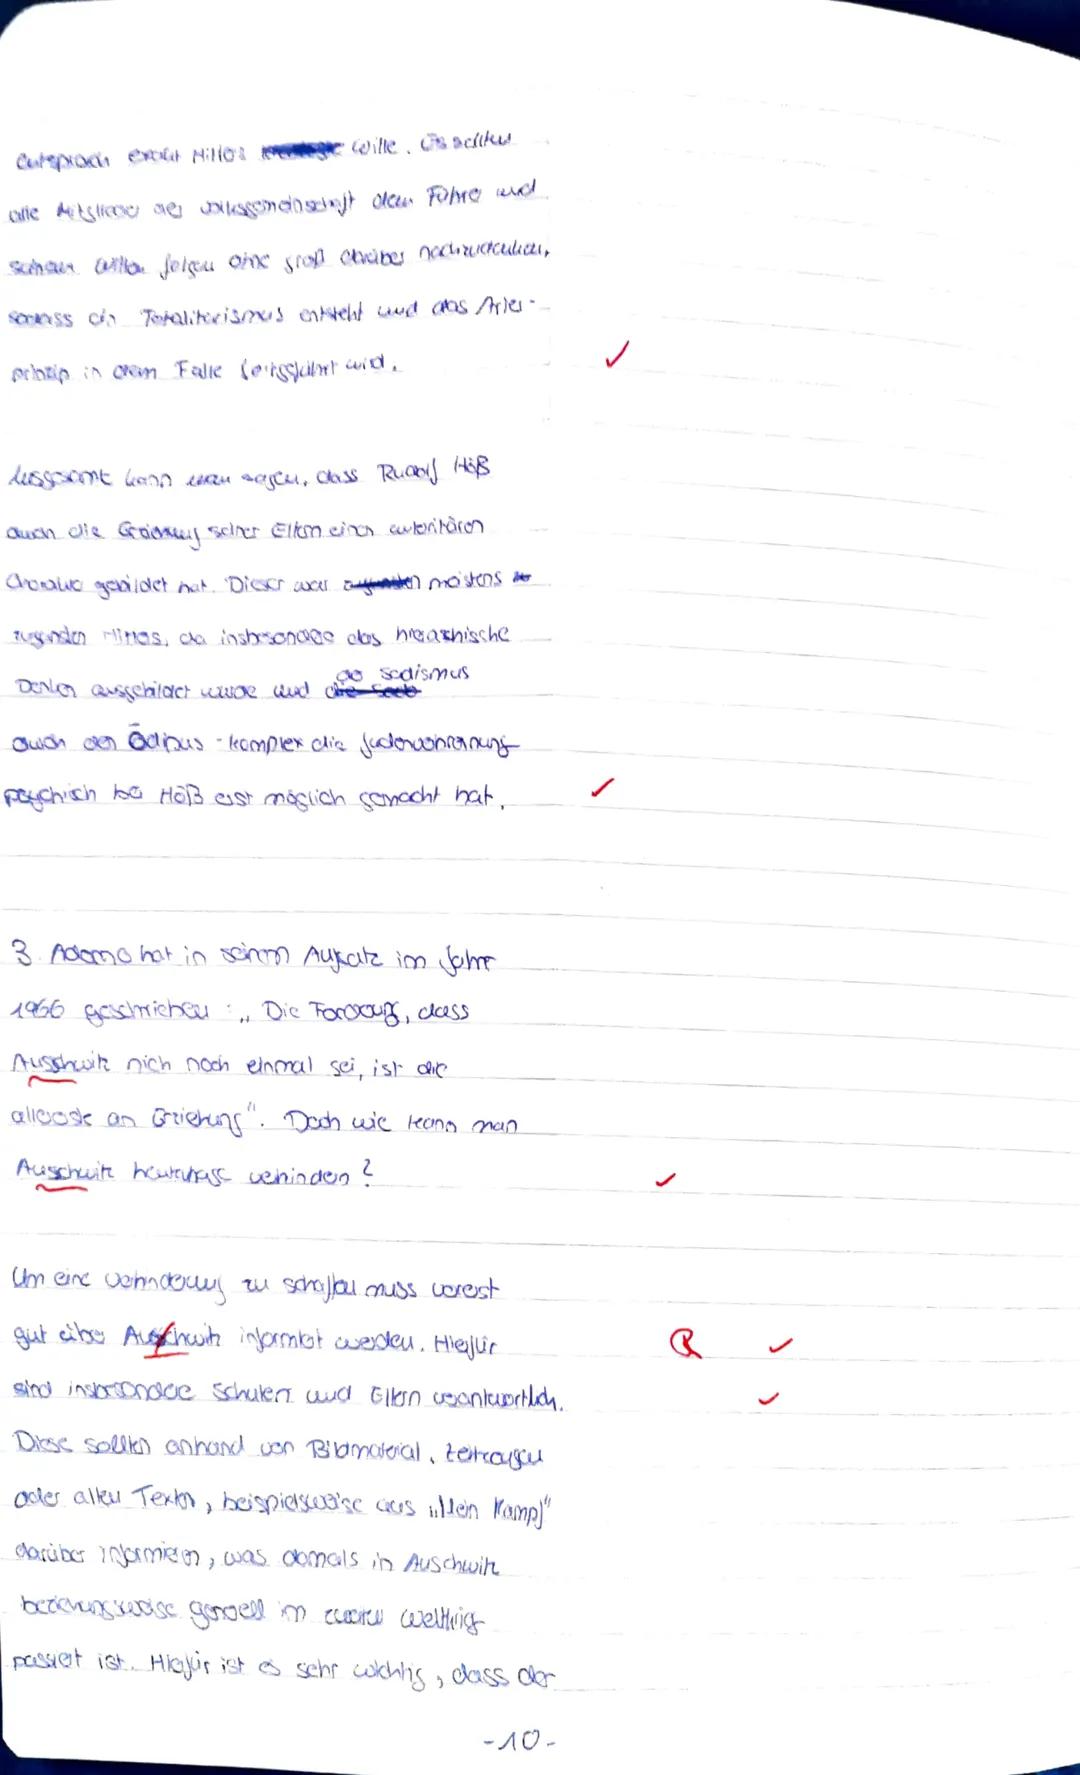 entsprach exakt Hitlers Wille. Es sollten
alle Mitglieder der Volksgemeinschaft dem Führer und
seinem Willen folgen ohne groß darüber nachzudenken,
sodass ein Totalitarismus entsteht und das Arier-
prinzip in dem Falle fortgeführt wird.
Insgesamt kann man sagen, dass Rudolf Höß
durch die Erziehung seiner Eltern einen autoritären
Charakter gebildet hat. Dieser war meistens
zugunsten Hitlers, da insbesondere das hierarchische
Denken ausgebildet wurde und
der Sadismus
durch den Ödipus-Komplex die Judenvernichtung
psychisch bei Höß erst möglich gemacht hat.
3. Adorno hat in seinem Aufsatz im Jahre
1966 geschrieben: „Die Forderung, dass
Ausschwitz nich noch einmal sei, ist die
allererste an Erziehung". Doch wie kann man
Auschwitz heutzutage verhindern?
Um eine Verhinderung zu schaffen muss vorerst
gut über Ausschwitz informiert werden. Hierfür R
sind insbesondere Schulen und Eltern verantwortlich.
Diese sollten anhand von Bildmaterial, Zeitzeugen
oder alten Texten, beispielsweise aus „Mein Kampf"
darüber informieren, was damals in Auschwitz
beziehungsweise generell im zweiten Weltkrieg
passiert ist. Hierfür ist es sehr wichtig, dass der
-10-